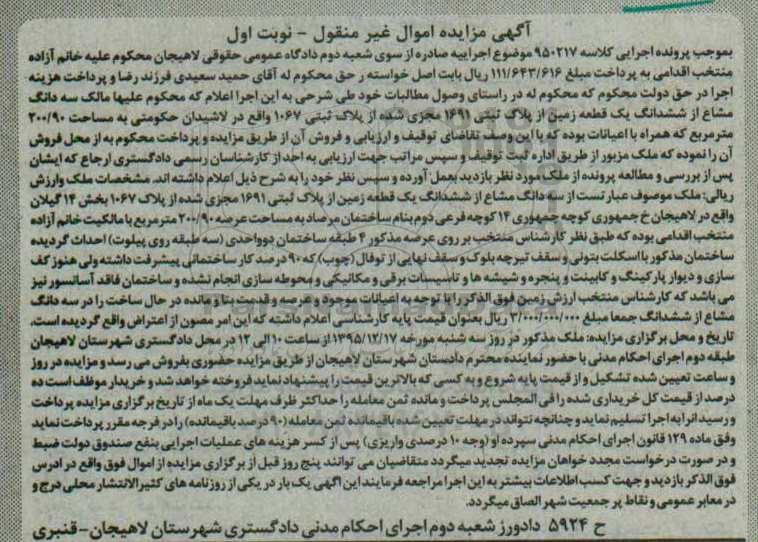 آگهی مزایده اموال غیر منقول - نوبت اول
بموجب پرونده اجرایی کلاسه ۹۵۰۲۱۷ موضوع اجراییه صادره از سوی شعبه دوم دادگاه عمومی حقوقی لاهیجان محکوم علیه خانم آزاده
منتخب اقدامی به پرداخت مبلغ ۱۱۱/۶۴۳/۶۱۶ ریال بابت اصل خواسته ر حق محکوم له آقای حمید سعیدی فرزند رضا و پرداخت هزینه
اجرا در حق دولت محکوم که محکوم له در راستای وصول مطالبات خود طی شرحی به این اجرا اعلام که محکوم علیها مالک سه دانگ
مشاع از ششدانگ یک قطعه زمین از پلاک ثبتی ۱۶۹۱ مجزی شده از پلاک ثبتی ۱۰۶۷ واقع در لاشیدان حکومتی به مساحت ۲۰۰/۹۰
مترمربع که همراه با اعیانات بوده که با این وصف تقاضای توقیف و ارزیابی و فروش آن از طریق مزایده و پرداخت محکوم به از محل فروش
آن را نموده که ملک مزبور از طریق اداره ثبت توقیف و سپس مراتب جهت ارزیابی به احد از کارشناسان رسمی دادگستری ارجاع که ایشان
پس از بررسی و مطالعه پرونده از ملک مورد نظر بازدید بعمل آورده و سپس نظر خود را به شرح ذیل اعلام داشته اند. مشخصات ملک وارزش
ریالی: ملک موصوف عبارتست از سه دانگ مشاع از ششدانگ یک قطعه زمین از پلاک ثبتی ۱۶۹۱ مجزی شده از پلاک ۱۰۶۷ بخش ۱۴ گیلان
واقع در لاهیجان خ جمهوری کوچه جمهوری ۱۴ کوچه فرعی دوم بنام ساختمان مرصاد به مساحت عرصه ۲۰۰/۹۰ متر مربع با مالکیت خانم آزاده
منتخب اقدامی بوده که طبق نظر کارشناس منتخب بر روی عرصه مذکور ۴ طبقه ساختمان دوواحدی (سه طبقه روی پیلوت) احداث گردیده
ساختمان مذکور با اسکلت بتونی و سقف تیرچه بلوک و سقف نهایی از توفال (چوب) که ۹۰ درصد کار ساختمانی پیشرفت داشته ولی هنوز کف
سازی و دیوار پارکینگ و کابینت و پنجره و شیشه ها و تاسیسات برقی و مکانیکی و محوطه سازی انجام نشده و ساختمان فاقد آسانسور نیز
می باشد که کارشناس منتخب ارزش زمین فوق الذکر را با توجه به اعیانات موجود و عرصه و قدمت بنا و مانده در حال ساخت را در سه دانگ
مشاع از ششدانگ جمعا مبلغ ۳/۰۰۰/۰۰۰/۰۰۰ ریال بعنوان قیمت پایه کارشناسی اعلام داشته که این امر مصون از اعتراض واقع گردیده است.
تاریخ و محل برگزاری مزایده: ملک مذکور در روز سه شنبه مورخه ۱۳۹۵/۱۲/۱۷ از ساعت ۱۰ الی ۱۲ در محل دادگستری شهرستان لاهیجان
طبقه دوم اجرای احکام مدنی با حضور نماینده محترم دادستان شهرستان لاهیجان از طریق مزایده حضوری بفروش می رسد و مزایده در روز
و ساعت تعیین شده تشکیل و از قیمت پایه شروع و به کسی که بالاترین قیمت را پیشنهاد نماید فروخته خواهد شد و خریدار موظف است ده
درصد از قیمت کل خریداری شده را فی المجلس پرداخت و مانده ثمن معامله را حداکثر ظرف مهلت یک ماه از تاریخ برگزاری مزایده پرداخت
و رسید انرا به اجرا تسلیم نماید و چنانچه نتواند در مهلت تعیین شده باقیمانده ثمن معامله (۹۰ درصد باقیمانده) را در فرجه مقرر پرداخت نماید
وفق ماده ۱۲۹ قانون اجرای احکام مدنی سپرده او (وجه ۱۰ درصدی واریزی) پس از کسر هزینه های عملیات اجرایی بنفع صندوق دولت ضبط
و در صورت درخواست مجدد خواهان مزایده تجدید میگردد متقاضیان می توانند پنج روز قبل از برگزاری مزایده از اموال فوق واقع در ادرس
فوق الذکر بازدید و جهت کسب اطلاعات بیشتر به این اجرا مراجعه فرمایند این آگهی یک بار در یکی از روزنامه های کثیرالانتشار محلی درج و
در معابر عمومی و نقاط پر جمعیت شهر الصاق میگردد.
ح ۵۹۲۴ دادورز شعبه دوم اجرای احکام مدنی دادگستری شهرستان لاهیجان-قنبری